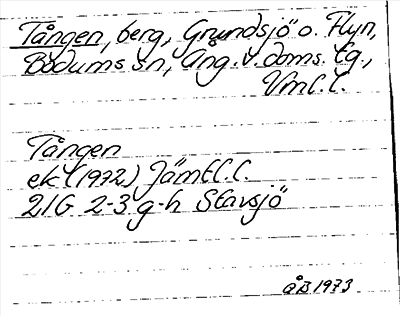 Tången, berg, Grundsjö o. Flyn,
Bodums sn, Ång. v. doms. tg.,
Vml. l.
Tången
ek (1972) Jämtl. l.
21G 2-3 g-h Stavsjö
ÅB 1973